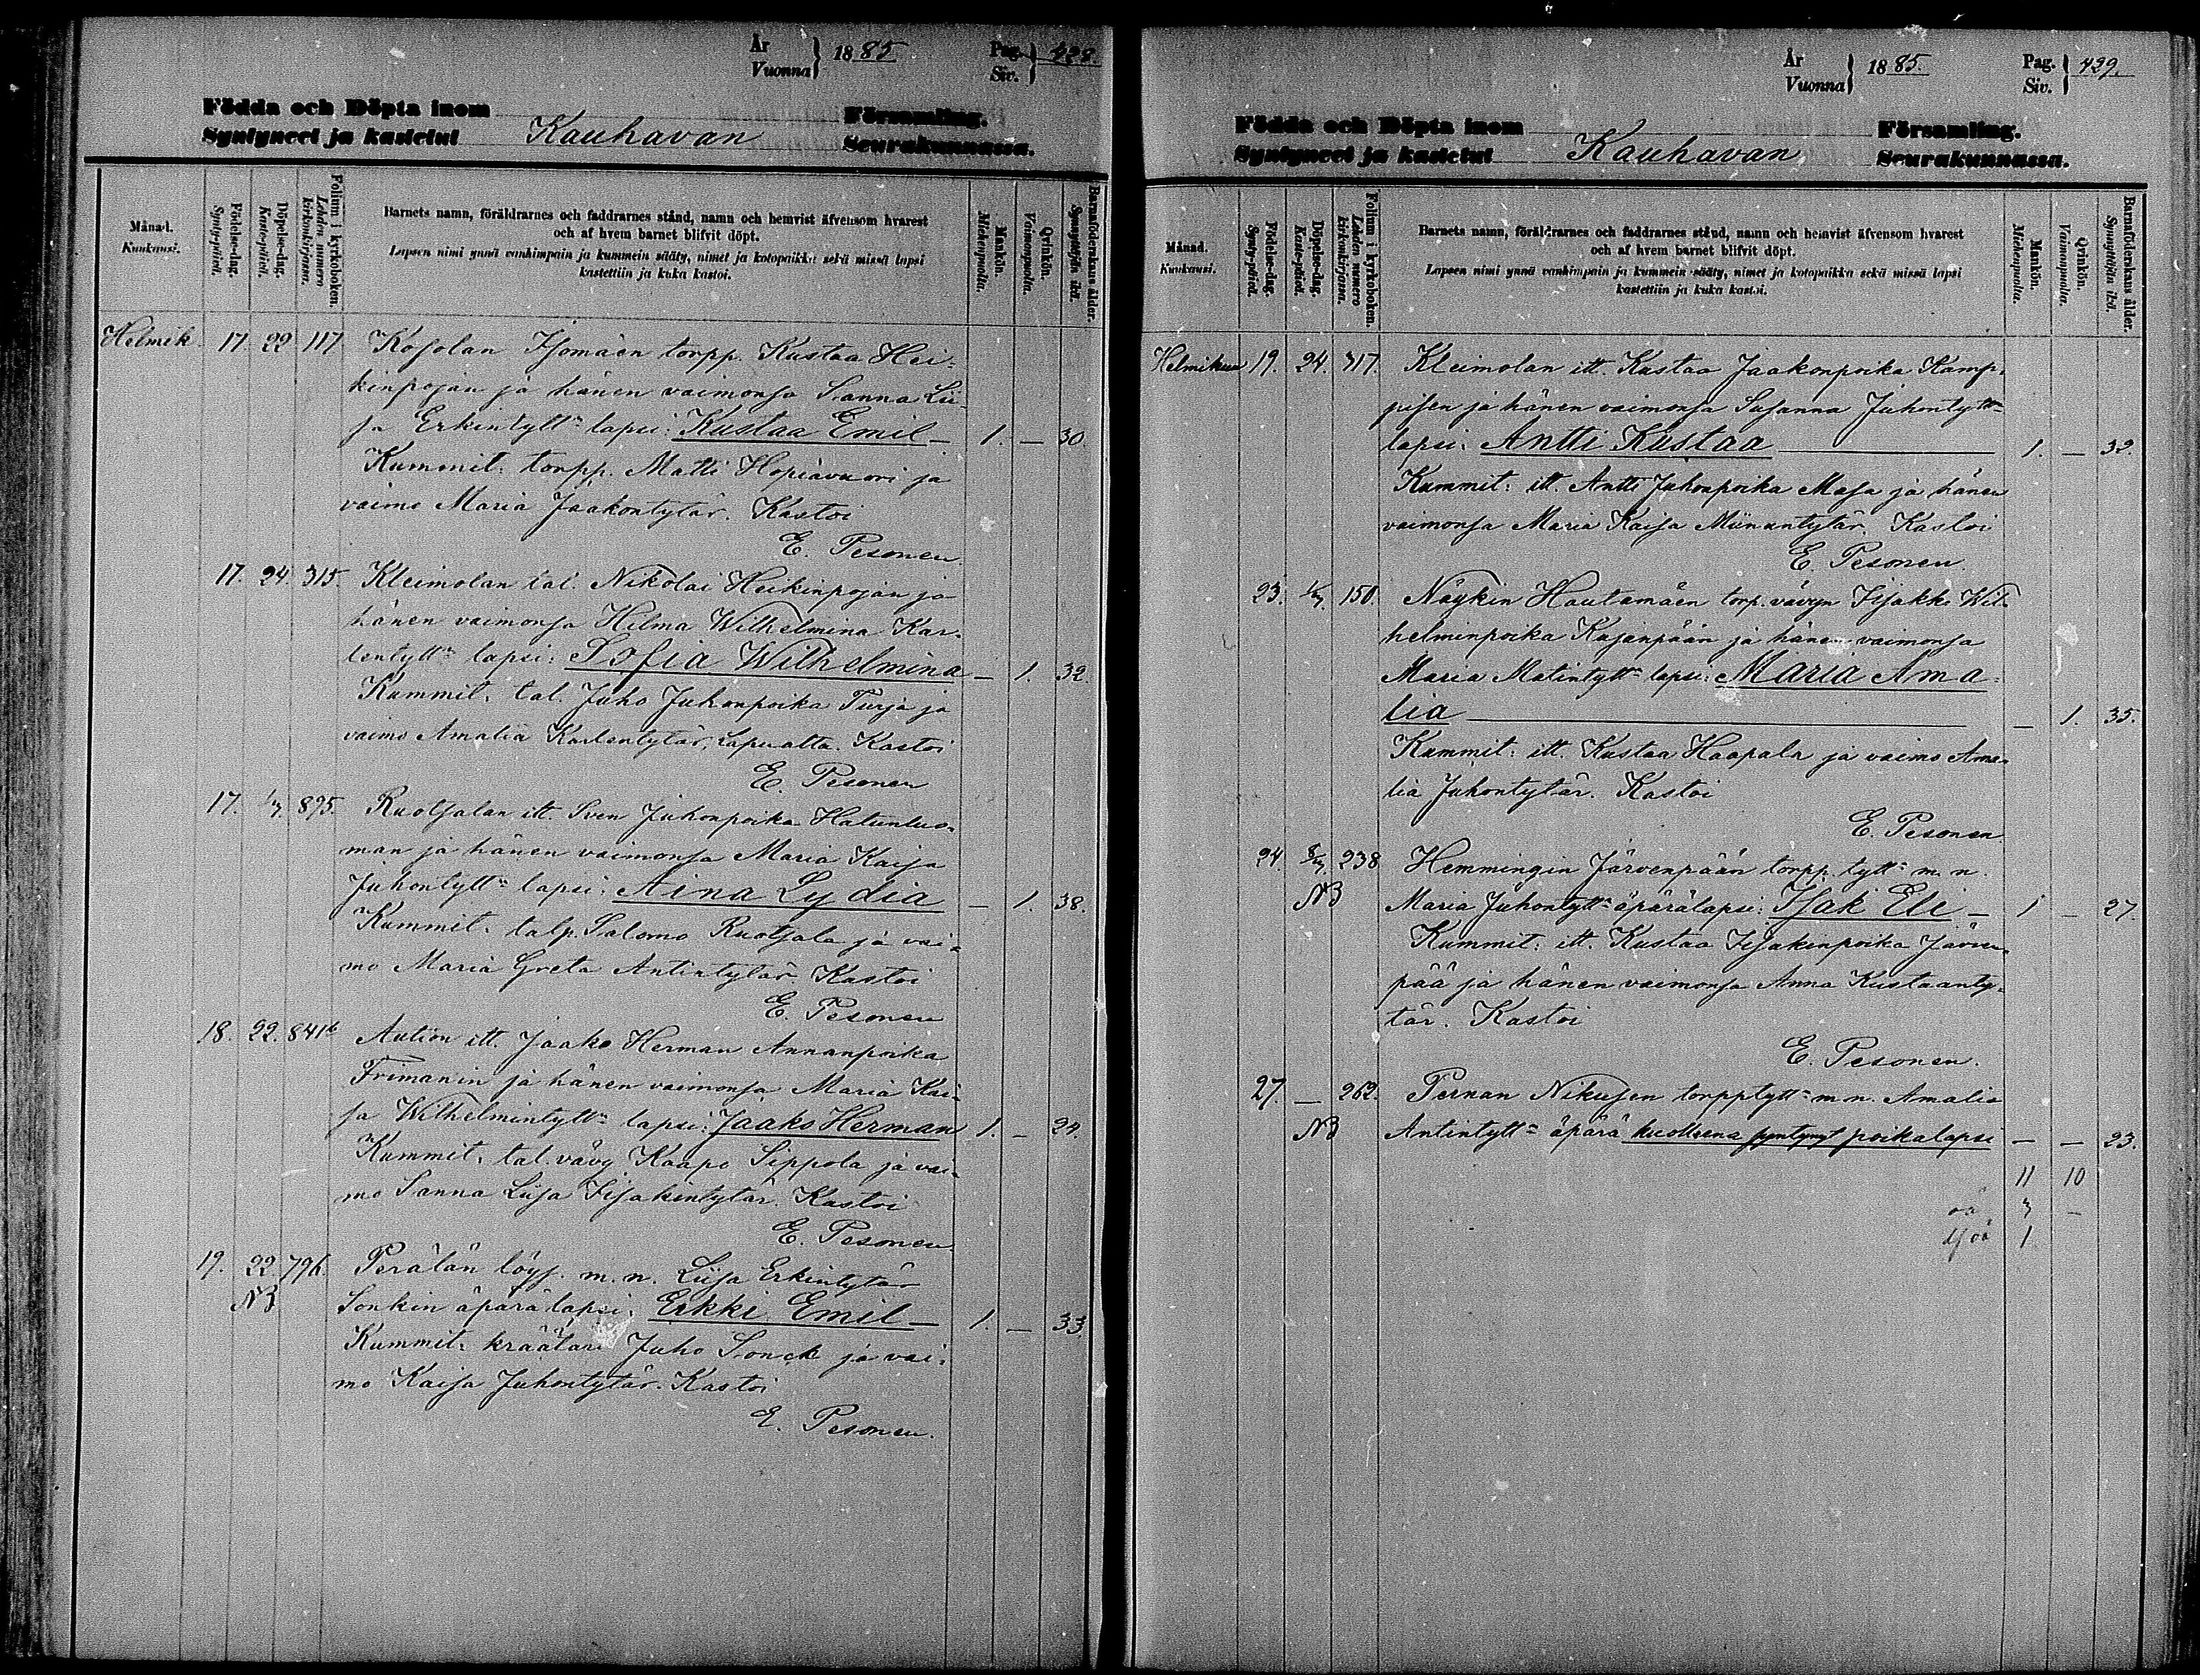 År
Vuonna } 1885 Pag.
Siv. } 428.
Födda och Döpta inom Församling.
Syntyneet ja kastetut Kauhavan Seurakunnassa.
Månad.
Kuukausi.
Födelse-dag.
Synty-päivä.
Döpelse-dag.
Kaste-päivä.
Folium i kyrkoboken.
Lehden numero kirkonkirjassa.
Barnets namn, föräldrarnes och faddrarnes stånd, namn och hemvist äfvensom hvarest
och af hvem barnet blifvit döpt.
Lapsen nimi ynnä vanhimpain ja kummein sääty, nimet ja kotopaikka sekä missä lapsi
kastettiin ja kuka kastoi.
Mankön.
Miehenpuolia.
Qvinkön.
Vaimonpuolia.
Barnaföderskans ålder.
Synnyttäjän ikä.
Helmik. 17. 22 117 Kosolan Isomäen torpp. Kustaa Hei-
kinpojan ja hänen vaimonsa Sanna Lii-
sa Erkintytt:n lapsi: Kustaa Emil — 1. — 30
Kummit: torpp. Matti Hopiavuori ja
vaimo Maria Jaakontytär. Kastoi
E. Pesonen.
17. 24 315. Kleimolan tal. Nikolai Heikinpojan ja
hänen vaimonsa Hilma Wilhelmina Kar-
lentytt:n lapsi: Sofia Wilhelmina — 1. 32
Kummit: tal. Juho Juhonpoika Turja ja
vaimo Amalia Karlentytär, Lapualta. Kastoi
E. Pesonen
17. 1/3 895. Ruotsalan itt. Sven Juhonpoika Hatunluo-
man ja hänen vaimonsa Maria Kaisa
Juhontytt:n lapsi: Aina Lydia — 1. 38.
Kummit: talp. Salomo Ruotsala ja vai-
mo Maria Greta Antintytär. Kastoi
E. Pesonen
18. 22. 841b Aution itt. Jaako Herman Annanpoika
Frimanin ja hänen vaimonsa Maria Kai-
sa Wilhelmintytt:n lapsi: Jaako Herman 1. — 24.
Kummit: tal. vävy Kaapo Sippola ja vai-
mo Sanna Liisa Iisakintytär. Kastoi
E. Pesonen.
19. 22. 796. Perälän löys. m. n. Liisa Erkintytär
NB Sonkin äpärälapsi: Erkki Emil — 1. — 33.
Kummit: kräätäri Juho Sonck ja vai-
mo Kaisa Juhontytär. Kastoi
E. Pesonen.
År
Vuonna } 1885. Pag.
Siv. } 429.
Födda och Döpta inom Församling.
Syntyneet ja kastetut Kauhavan Seurakunnassa.
Månad.
Kuukausi.
Födelse-dag.
Synty-päivä.
Döpelse-dag.
Kaste-päivä.
Folium i kyrkoboken.
Lehden numero kirkonkirjassa.
Barnets namn, föräldrarnes och faddrarnes stånd, namn och hemvist äfvensom hvarest
och af hvem barnet blifvit döpt.
Lapsen nimi ynnä vanhimpain ja kummein sääty, nimet ja kotopaikka sekä missä lapsi
kastettiin ja kuka kastoi.
Mankön.
Miehenpuolia.
Qvinkön.
Vaimonpuolia.
Barnaföderskans ålder.
Synnyttäjän ikä.
Helmikuu 19. 24. 317. Kleimolan itt. Kustaa Jaakonpoika Kamp-
pisen ja hänen vaimonsa Susanna Juhontytt:n
lapsi: Antti Kustaa 1. — 32.
Kummit: itt. Antti Juhonpoika Masa ja hänen
vaimonsa Maria Kaisa Miinantytär. Kastoi
E. Pesonen.
23. 1/3 150. Näykin Hautamäen torp. vävyn Iisakki Wil-
helminpoika Kujanpään ja hänen vaimonsa
Maria Matintytt:n lapsi: Maria Ama-
lia — 1. 35.
Kummit: itt. Kustaa Haapala ja vaimo Ama-
lia Juhontytär. Kastoi
E. Pesonen
24. 8/3 238 Hemmingin Järvenpään torpp. tytt:n m. n.
NB Maria Juhontytt:n äpärälapsi: Isak Eli — 1 — 27.
Kummit: itt. Kustaa Iisakinpoika Järven-
pää ja hänen vaimonsa Anna Kustaanty-
tär. Kastoi
E. Pesonen.
27. — 262. Pernan Nikusen torpptytt:n m. n. Amalia
NB Antintytt:n äpärä kuolleena syntynyt poikalapsi — — 23.
11 10
oä 3 —
dföä 1